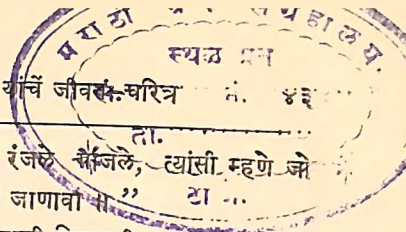 मराठी ग्रंथ संग्रहालय.
स्थळ प्रत
यांचें जीवन-चरित्र नं. ४३
ता.
रंजले गांजले, त्यांसी म्हणे जो
जाणावा ॥” ठा ...